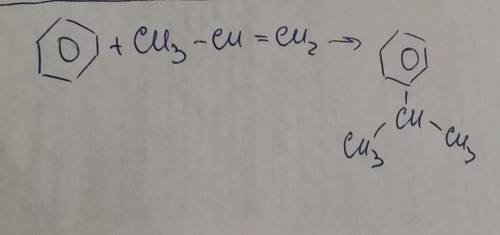 + CH₃ - CH = CH₂ →
CH
CH₃ CH₃